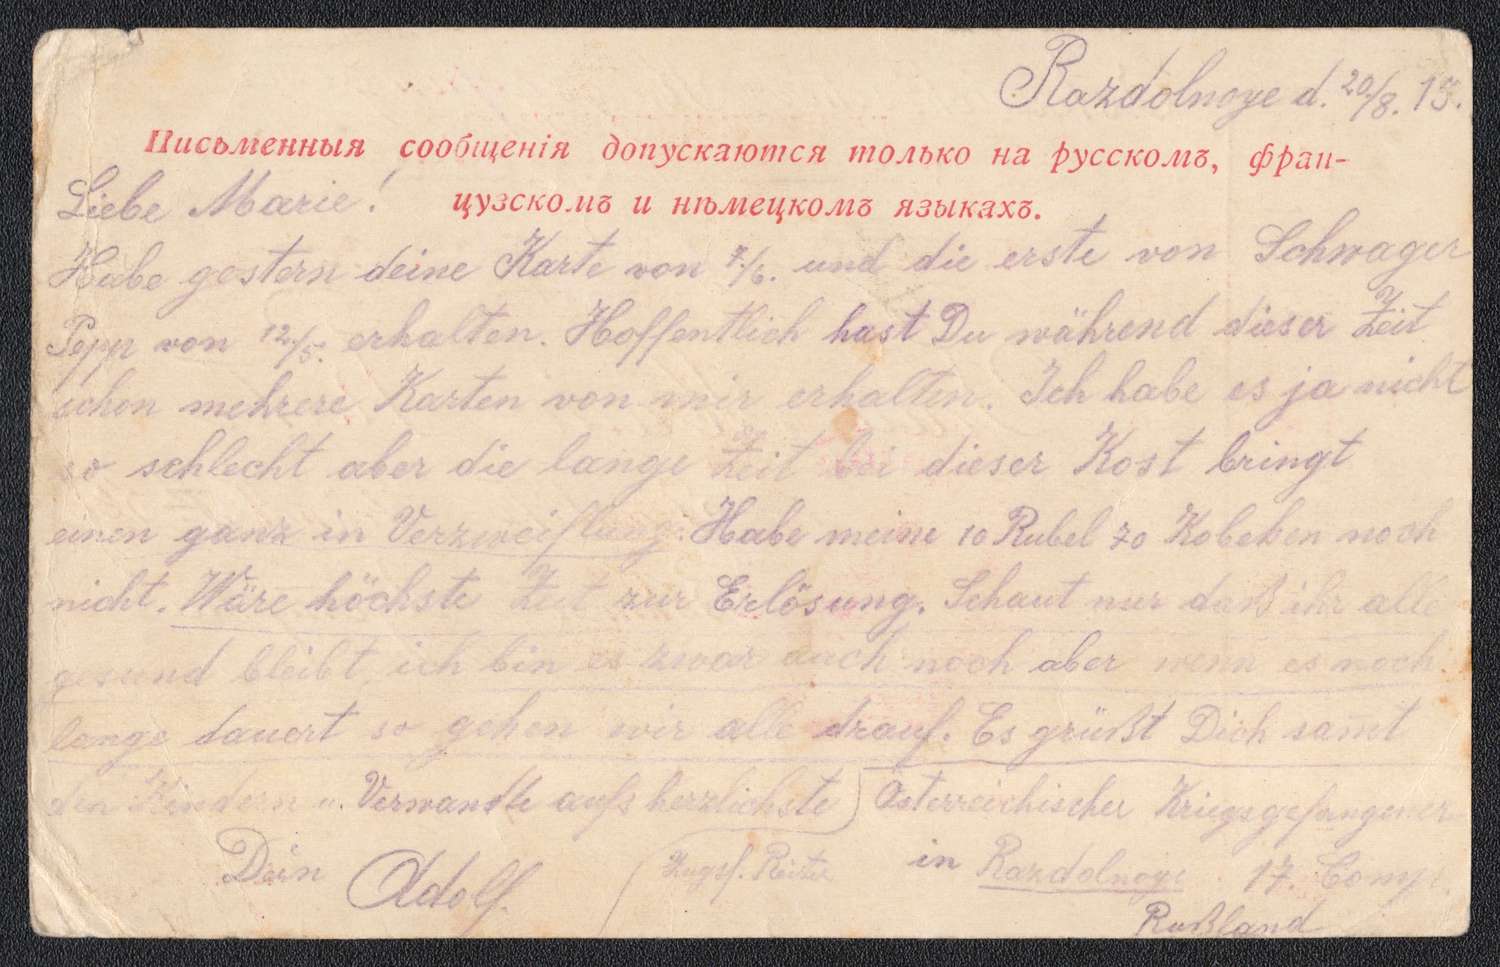 Razdolnoye d. 20/8. 15.
Письменныя сообщенія допускаются только на русскомъ, фран-
цузскомъ и нѣмецкомъ языкахъ.
Liebe Marie!
Habe gestern deine Karte von 7./6. und die erste von Schwager
Pepp von 12/5. erhalten. Hoffentlich hast Du während dieser Zeit
schon mehrere Karten von mir erhalten. Ich habe es ja nicht
so schlecht aber die lange Zeit bei dieser Kost bringt
einen ganz in Verzweiflung. Habe meine 10 Rubel 70 Kobeken noch
nicht. Wäre höchste Zeit zur Erlösung. Schaut nur daß ihr alle
gesund bleibt ich bin es zwar auch noch aber wenn es noch
lange dauert so gehen wir alle drauf. Es grüßt Dich samt
den Kindern u. Verwandte aufs herzlichste
Dein Adolf.
Österreichischer Kriegsgefangener
Zugsf.
in Razdolnoye 17. Comp.
Rußland